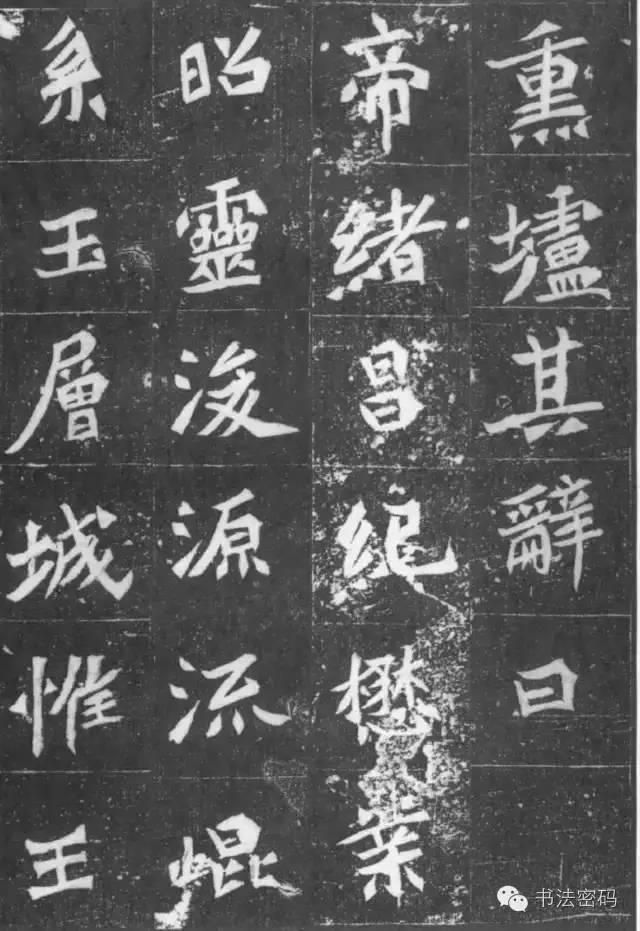 熏壚其辭曰
帝緒昌紀懋業
昭靈浚源流崐
系玉層城惟王
书法密码